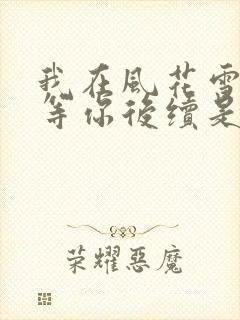 我在風花雪
等你後續是
荣耀惡魔